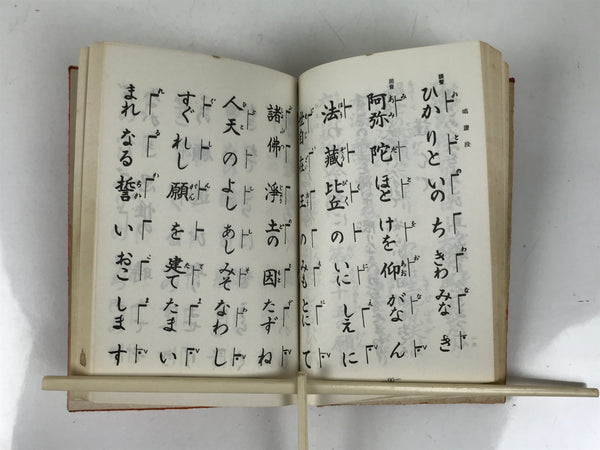 唱讚段
調聲
ひかりといのちきわみなき
同音
阿弥陀ほとけを仰がなん
法藏比丘のいにしえに
世自在王のみもとにて
諸佛淨土の因たずね
人天のよしあしみそなわし
すぐれし願を建てたまい
まれなる誓いおこします